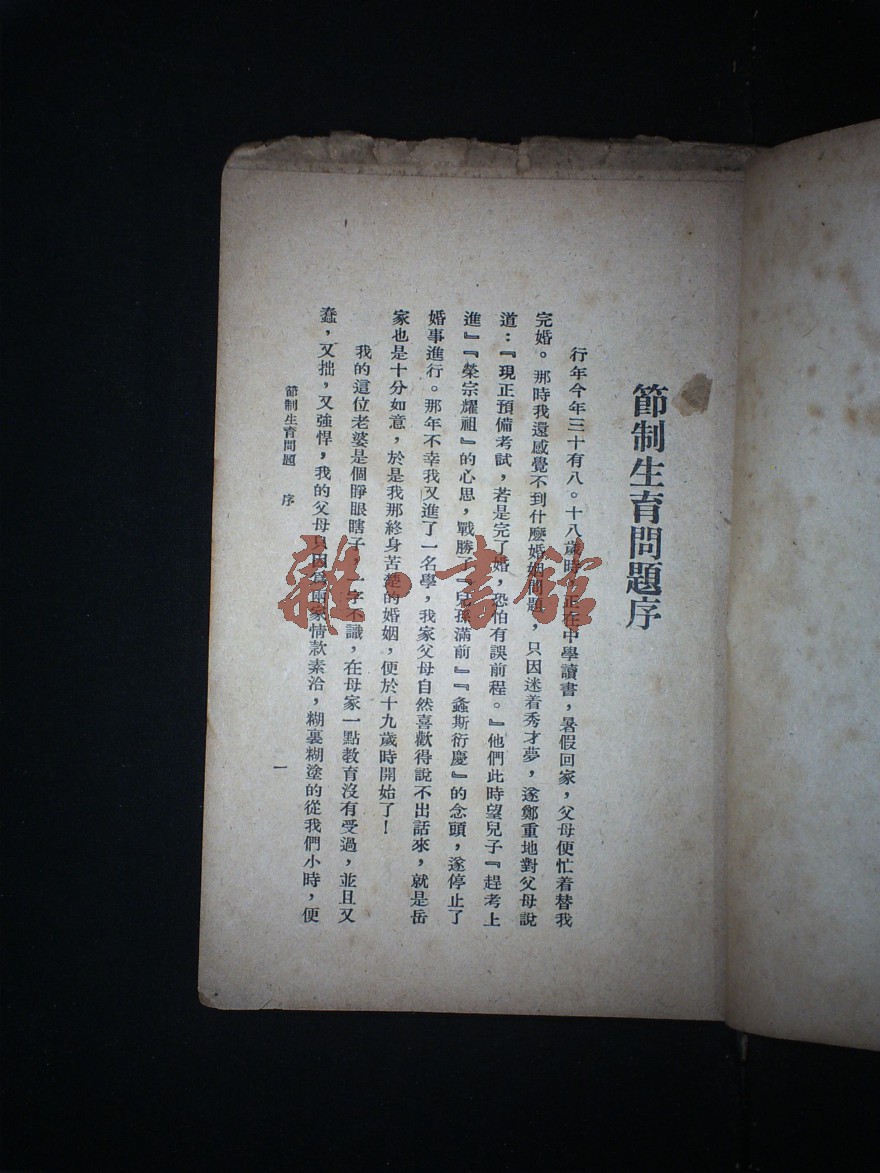 節制生育問題序
行年今年三十有八。十八歲時,正在中學讀書,暑假回家,父母便忙着替我
完婚。那時我還感覺不到什麼婚姻問題,只因迷着秀才夢,遂鄭重地對父母說
道:『現正預備考試,若是完了婚,恐怕有誤前程。』他們此時望兒子『趕考上
進』『榮宗耀祖』的心思,戰勝了『兒孫滿前』『螽斯衍慶』的念頭,遂停止了
婚事進行。那年不幸我又進了一名學,我家父母自然喜歡得說不出話來,就是岳
家也是十分如意,於是我那終身苦楚的婚姻,便於十九歲時開始了!
我的這位老婆是個睜眼瞎子,一字不識,在母家一點教育沒有受過,並且又
蠢,又拙,又強悍,我的父母只因為兩家情款素洽,糊裏糊塗的從我們小時,便
節制生育問題 序
一
雜·書館